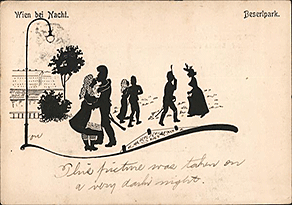 Wien bei Nacht.
Beserlpark.
This picture was taken on
a very dark night.